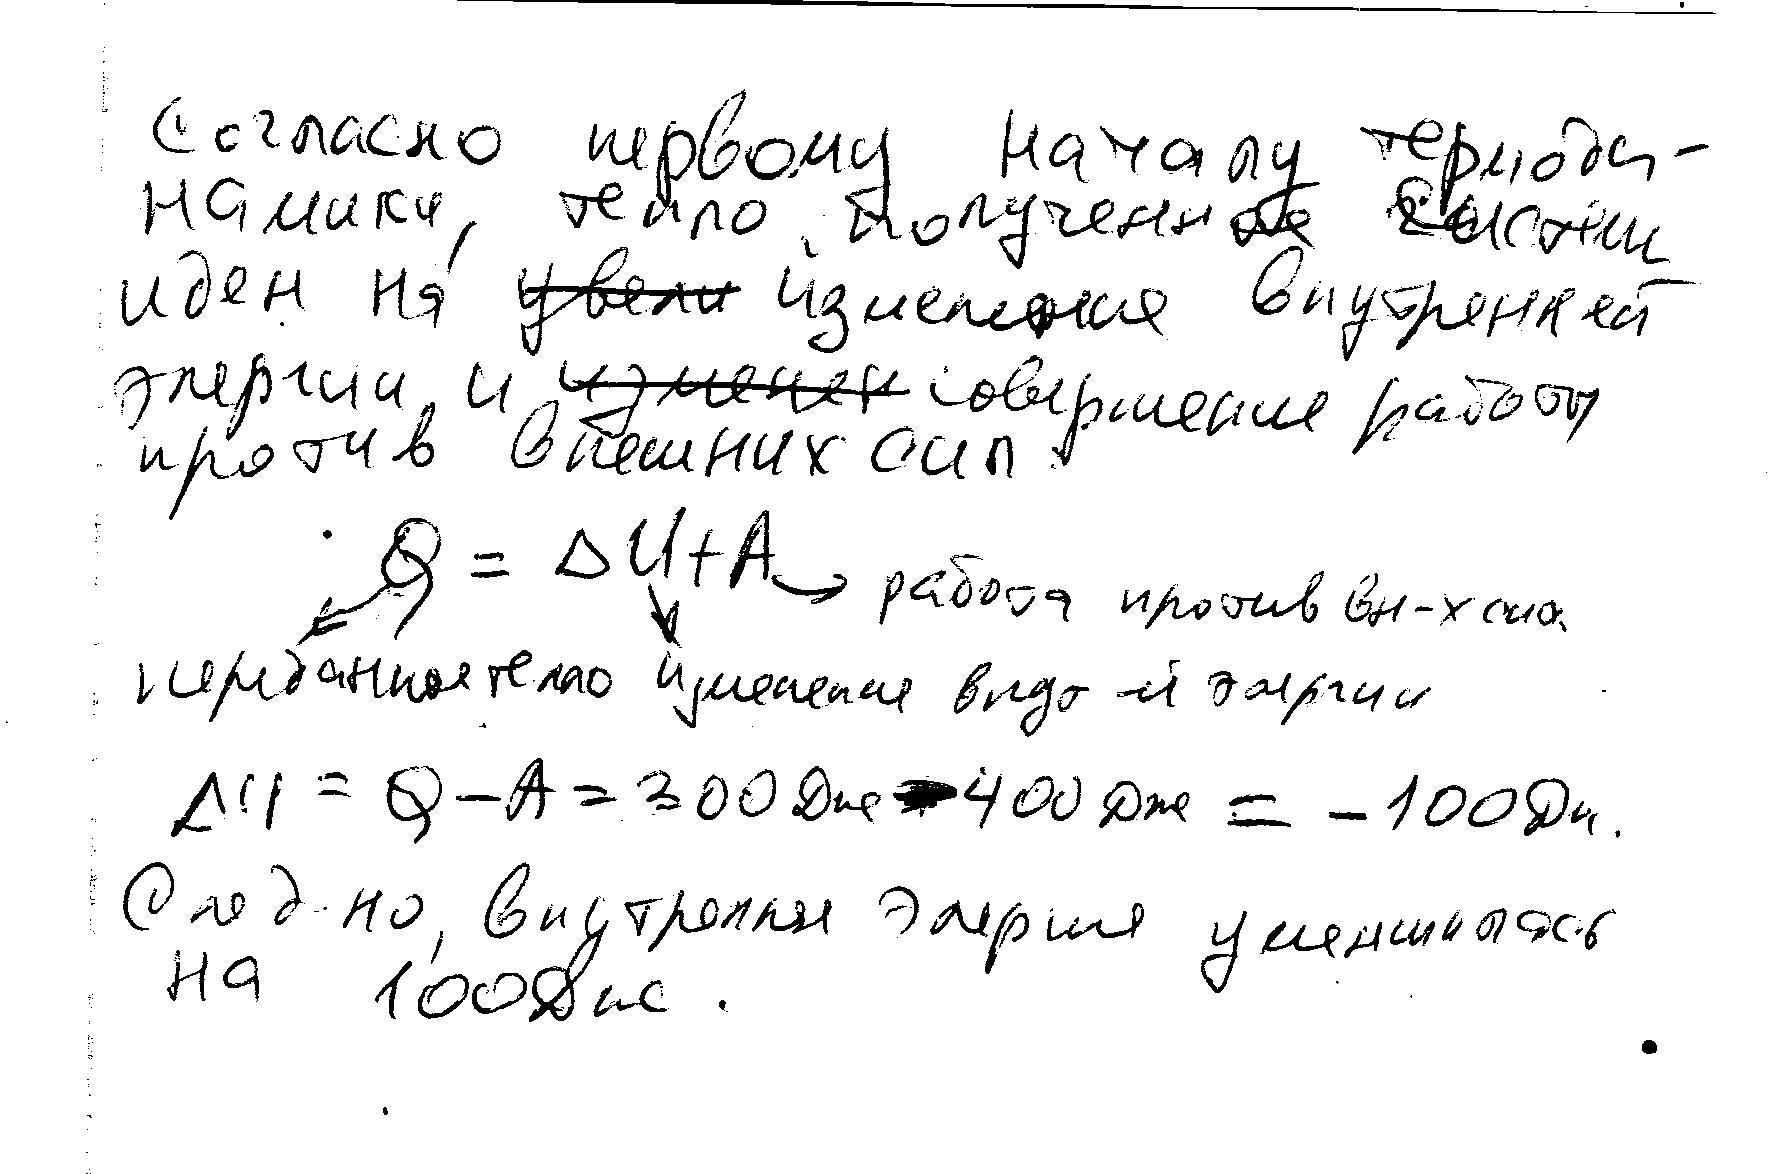 Согласно первому началу термоди-
намики, тепло, полученное
идет на ~~увели~~ изменение внутренней
энергии и ~~изменен~~ совершение работы
против внешних сил.
Q = ΔU + A → работа против вн-х сил.
переданное тепло изменение внут-й энергии
ΔU = Q - A = 300 Дж - 400 Дж = -100 Дж.
След-но, внутренняя энергия уменьшилась
на 100 Дж.